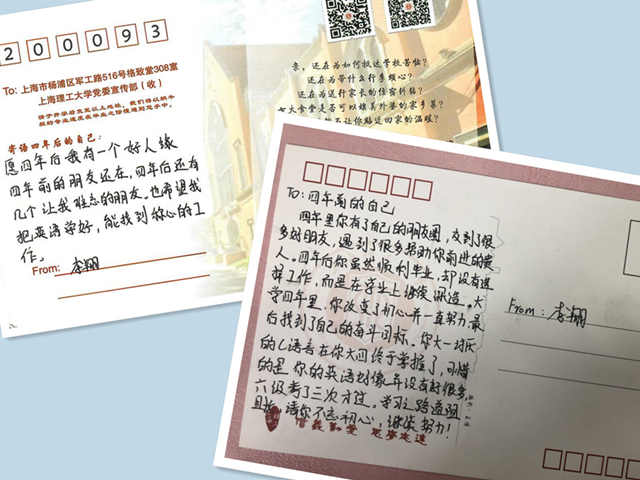 200093
To: 上海市杨浦区军工路516号格致堂308室
上海理工大学党委宣传部（收）
寄语四年后的自己:
愿四年后我有一个好人缘
四年前的朋友还在,四年后还有
几个让我难忘的朋友。也希望我
把英语学好,能找到称心的工
作。
From: 李翔
亲，还在为如何报答学校苦恼?
还在为带什么行李烦心?
还在为送行家长的住宿纠结?
To:四年前的自己
四年里你有了自己的朋友圈,交到了很
多好朋友,遇到了很多帮助你前进的贵
人。四年后你虽然顺利毕业,却没有选
择工作,而是在学业上继续深造。大
学四年里,你改变了初心并一直努力,最
后找到了自己的奋斗目标。你大一讨厌
的C语言在你大四终于掌握了,可惜
的是你的英语好像并没有好很多,
六级考了三次才过。学习之路道阻
且长,请你不忘初心,继续努力!
信义勤爱 思学志远
From: 李翔